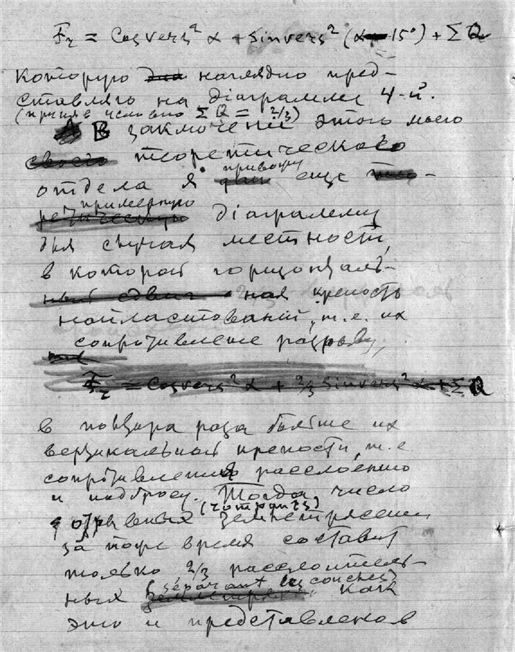 F₂ = Cosvers² α + Sinvers² (α – 15°) + Σ Q
которую наглядно пред-
ставляю на діаграммѣ 4-й.
(принявъ условно Σ Q = 1 2/3)
В заключеніи этого моего
теоретическаго
отдела я привожу еще
примерную
діаграмму
для случая местности,
в которой горизонталь-
ная крепость
напластованій, т.е. их
сопротивленіе разрыву,
F₂ = Cosvers² α + 2/3 Sinvers² α + Σ Q
в полтора раза больше их
вертикальной крепости, т.е.
сопротивленія разслоенію
и надбросу. Тогда число
отрывных землетрясеній
за то же время составит
только 2/3 разслоитель-
ных (séparant les couches)
как
это и представлено в